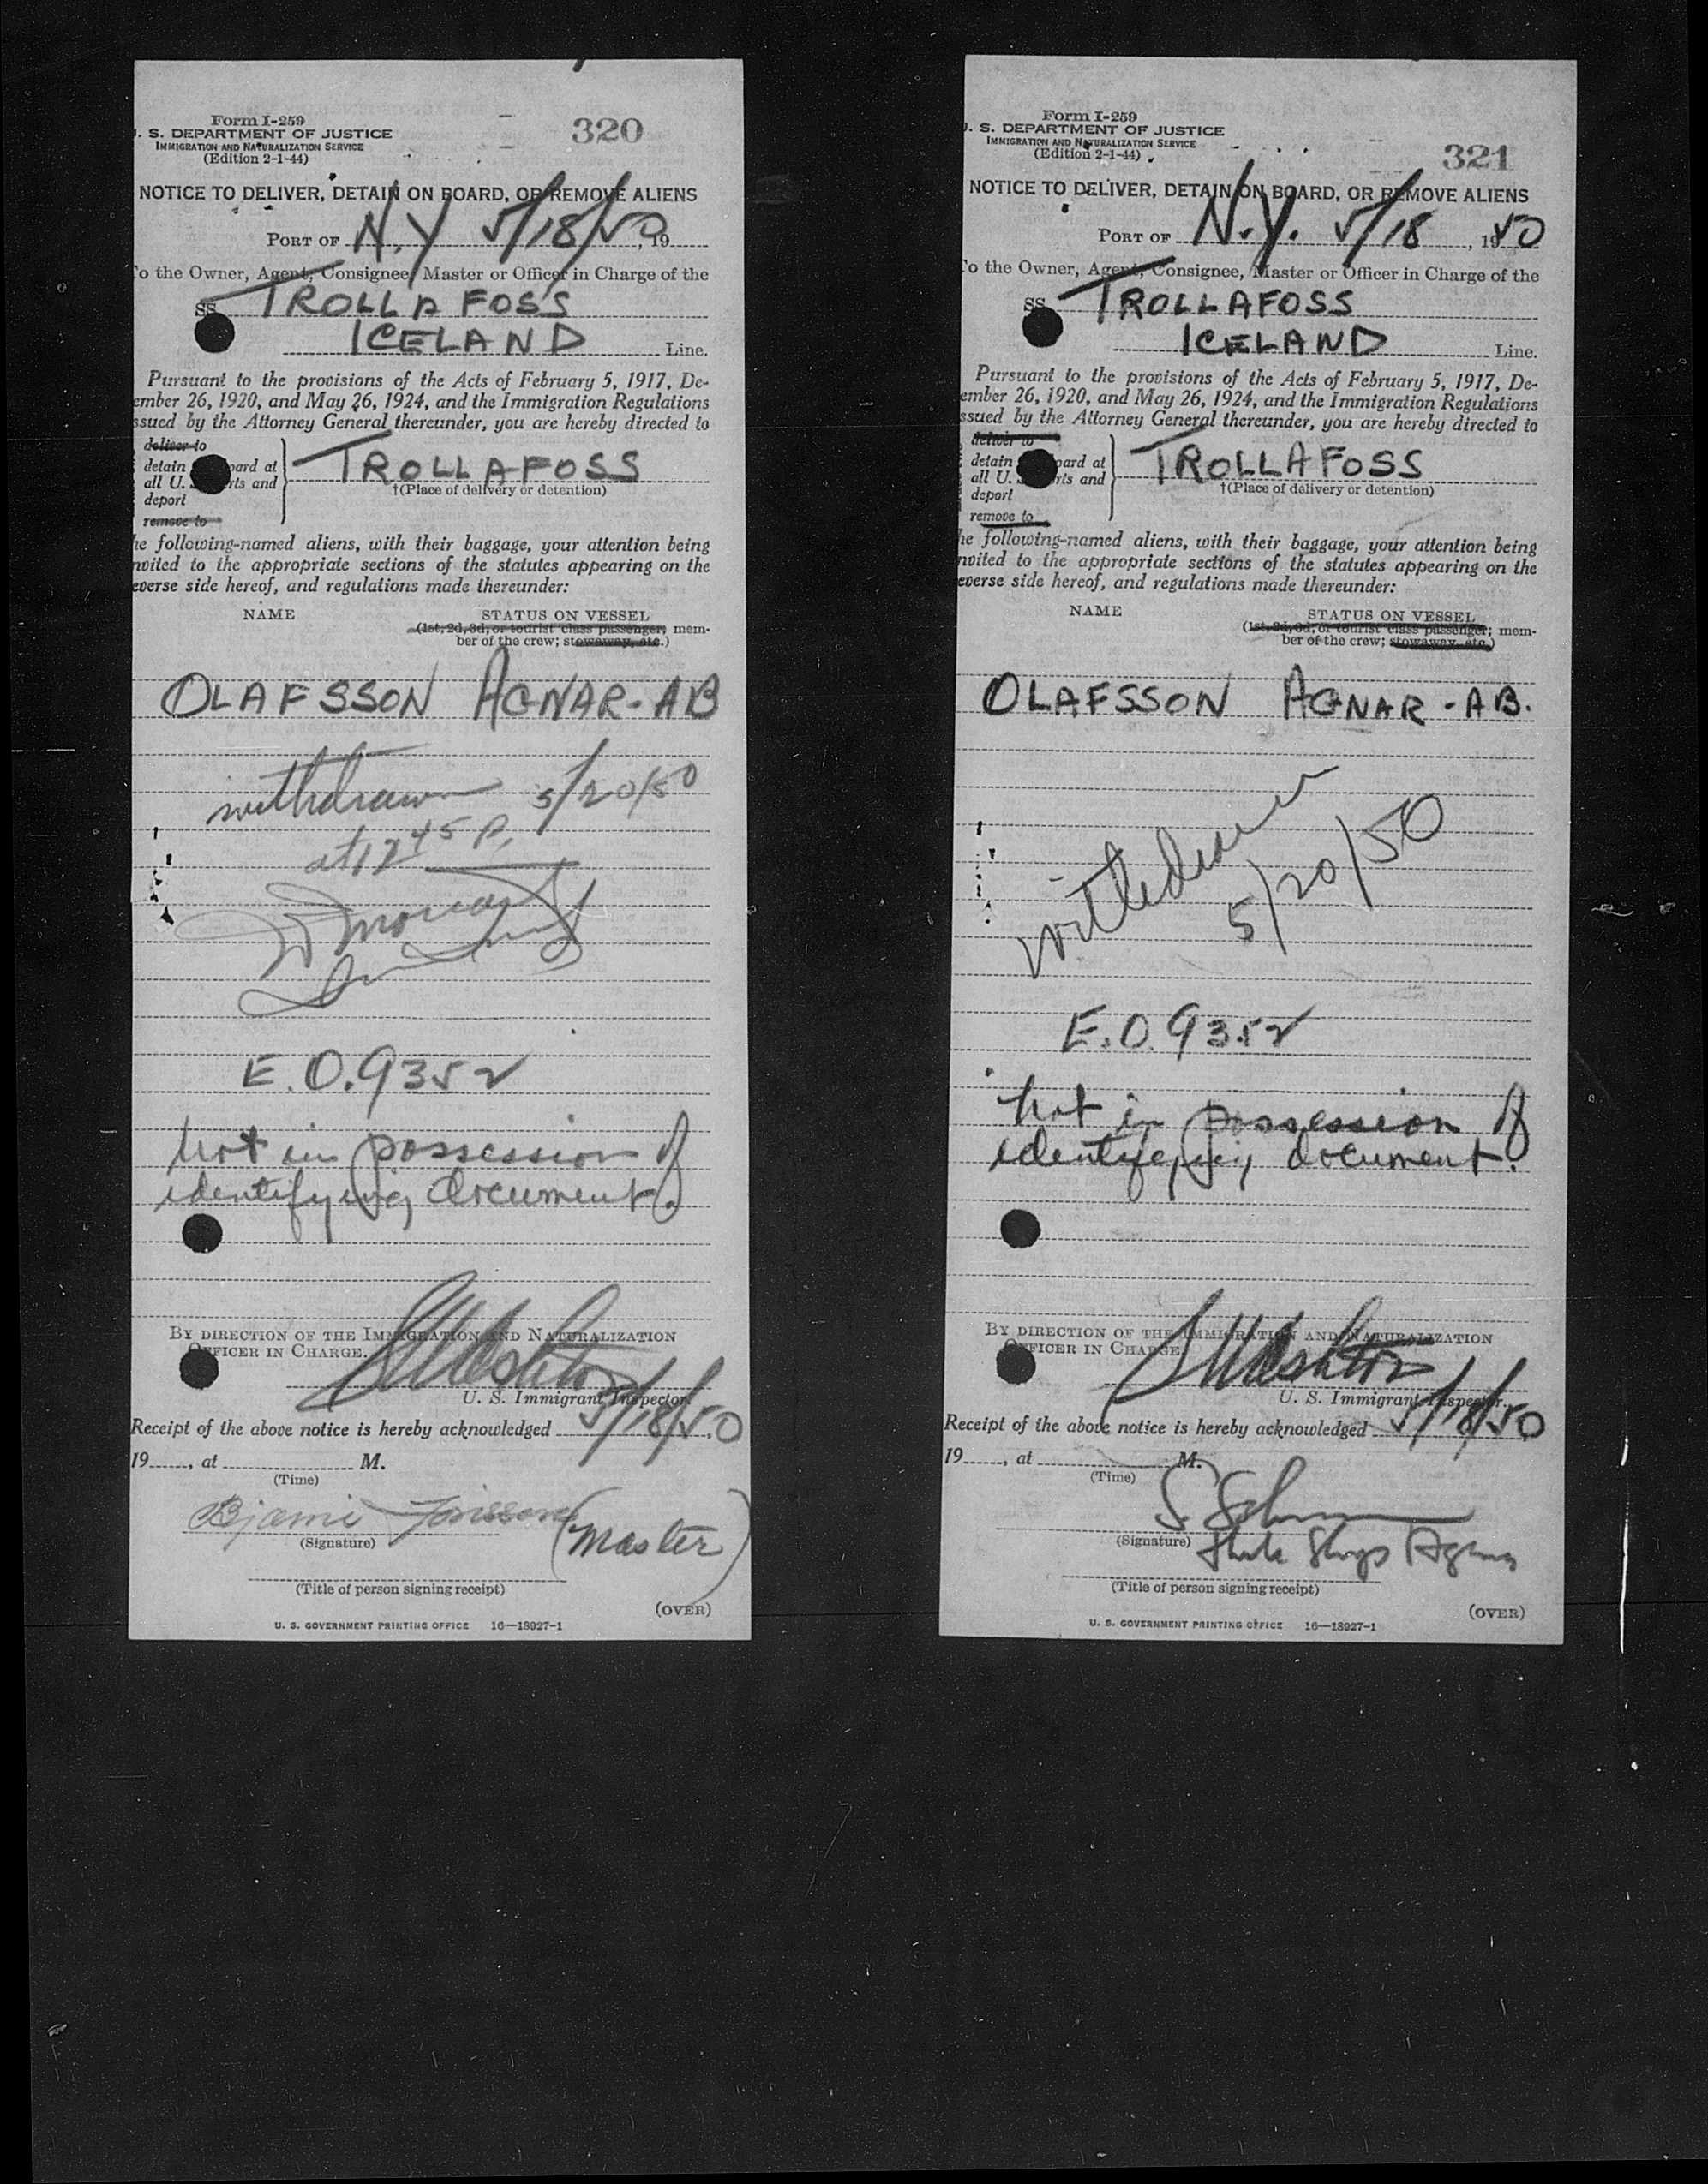 Form I-259
320
. S. DEPARTMENT OF JUSTICE
IMMIGRATION AND NATURALIZATION SERVICE
(Edition 2-1-44)
NOTICE TO DELIVER, DETAIN ON BOARD, OR REMOVE ALIENS
PORT OF N.Y 5/18/50, 19
o the Owner, Agent, Consignee, Master or Officer in Charge of the
SS TROLLAFOSS
ICELAND Line.
Pursuant to the provisions of the Acts of February 5, 1917, De-
ember 26, 1920, and May 26, 1924, and the Immigration Regulations
ssued by the Attorney General thereunder, you are hereby directed to
deliver to
detain oard at
all U. S. rts and
deport
remove to
TROLLAFOSS
†(Place of delivery or detention)
he following-named aliens, with their baggage, your attention being
nvited to the appropriate sections of the statutes appearing on the
everse side hereof, and regulations made thereunder:
NAME STATUS ON VESSEL
(1st, 2d, 3d, or tourist class passenger; mem-
ber of the crew; stowaway, etc.)
OLAFSSON AGNAR - AB
withdrawn 5/20/50
at 12 45 P.
E.O. 9352
Not in possession of
identifying document.
BY DIRECTION OF THE IMMIGRATION AND NATURALIZATION
OFFICER IN CHARGE.
U. S. Immigrant Inspector.
Receipt of the above notice is hereby acknowledged 5/18/50
19, at M.
(Time)
Bjarni
(Signature)
(Master)
(Title of person signing receipt)
(OVER)
U. S. GOVERNMENT PRINTING OFFICE 16—18927-1
Form I-259
321
. S. DEPARTMENT OF JUSTICE
IMMIGRATION AND NATURALIZATION SERVICE
(Edition 2-1-44)
NOTICE TO DELIVER, DETAIN ON BOARD, OR REMOVE ALIENS
PORT OF N.Y. 5/18, 1950
o the Owner, Agent, Consignee, Master or Officer in Charge of the
SS TROLLAFOSS
ICELAND Line.
Pursuant to the provisions of the Acts of February 5, 1917, De-
ember 26, 1920, and May 26, 1924, and the Immigration Regulations
ssued by the Attorney General thereunder, you are hereby directed to
deliver to
detain oard at
all U. S. rts and
deport
remove to
TROLLAFOSS
†(Place of delivery or detention)
he following-named aliens, with their baggage, your attention being
nvited to the appropriate sections of the statutes appearing on the
everse side hereof, and regulations made thereunder:
NAME STATUS ON VESSEL
(1st, 2d, 3d, or tourist class passenger; mem-
ber of the crew; stowaway, etc.)
OLAFSSON AGNAR - AB.
withdrawn
5/20/50
E.O. 9352
Not in possession of
identifying document.
BY DIRECTION OF THE IMMIGRATION AND NATURALIZATION
OFFICER IN CHARGE.
U. S. Immigrant Inspector.
Receipt of the above notice is hereby acknowledged 5/18/50
19, at M.
(Time)
(Signature)
(Title of person signing receipt)
(OVER)
U. S. GOVERNMENT PRINTING OFFICE 16—18927-1